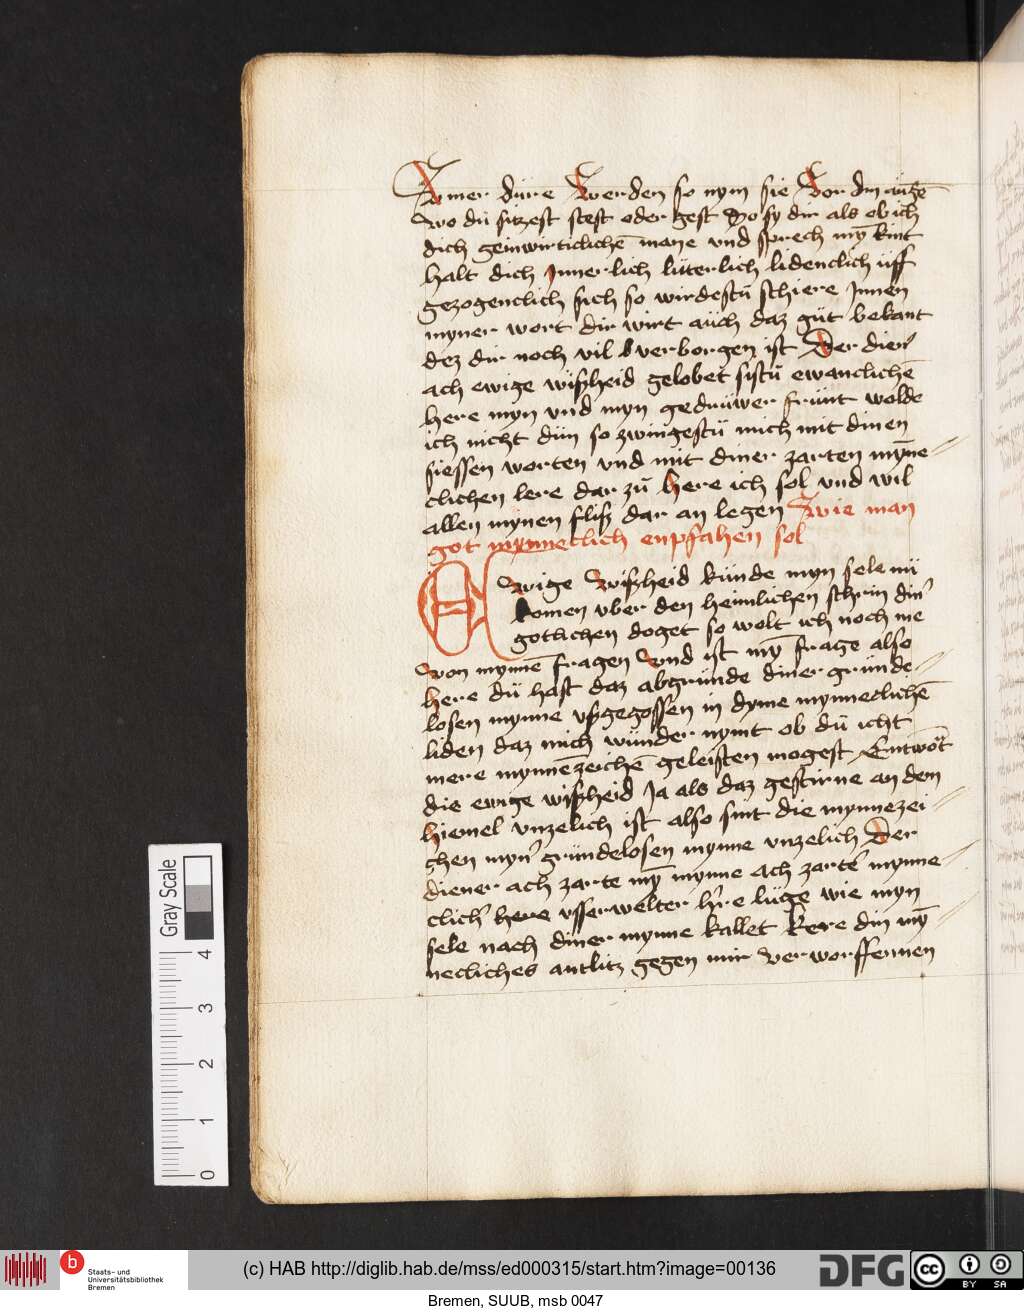 Jmer düre werden so nym sie vor din augē
wo dü sitzest stest oder gest Do sy dir als ob ich
dich geinwirticlichē mane vnd sprech mȳ kint
halt dich Jnnerlich lüterlich lidenclich üff
gezogenclich sich so wirdestü schiere Jnnen
myner wort dir wirt aüch daz güt bekant
dez dir noch vil verborgen ist Der dien'
ach ewige wißheid gelobet sistü ewanclichē
here myn vnd myn gedrüwer frünt wolde
ich nicht dün so zwingestü mich mit dinen
siessen worten vnd mit diner zarten mȳne
clichen lere dar zü here ich sol vnd wil
allen mynen fliß dar an legen Wie man
got mynneclich enpfahen sol
Ewige wißheid künde myn sele nü
komen vber den heimlichen schrin din'
gotlichen doget so wolt ich noch me
von mynnē fragen vnd ist mȳ frage also
here dü hast daz abgründe diner gründe
losen mynne vßgegossen in dyme mynneclichē
liden daz mich wünder nymt ob dü icht
mere mynnēzeichē geleisten mogest Entwōt
die ewige wißheid Ja als daz gestirne an dem
hiemel vnzelich ist also sint die mynnezei
chen myn' gründelosen mynne vnzelich Der
diener ach zarte mȳ mynne ach zarte' mynne
clich' here vsserwelter h're lüge wie myn
sele nach diner mynne kallet kere din mȳ
necliches antlitz gegen mir verworffennen
Gray Scale
4
3
2
1
0
b
Staats- und
Universitätsbibliothek
Bremen
(c) HAB http://diglib.hab.de/mss/ed000315/start.htm?image=00136
DFG
cc
BY SA
Bremen, SUUB, msb 0047